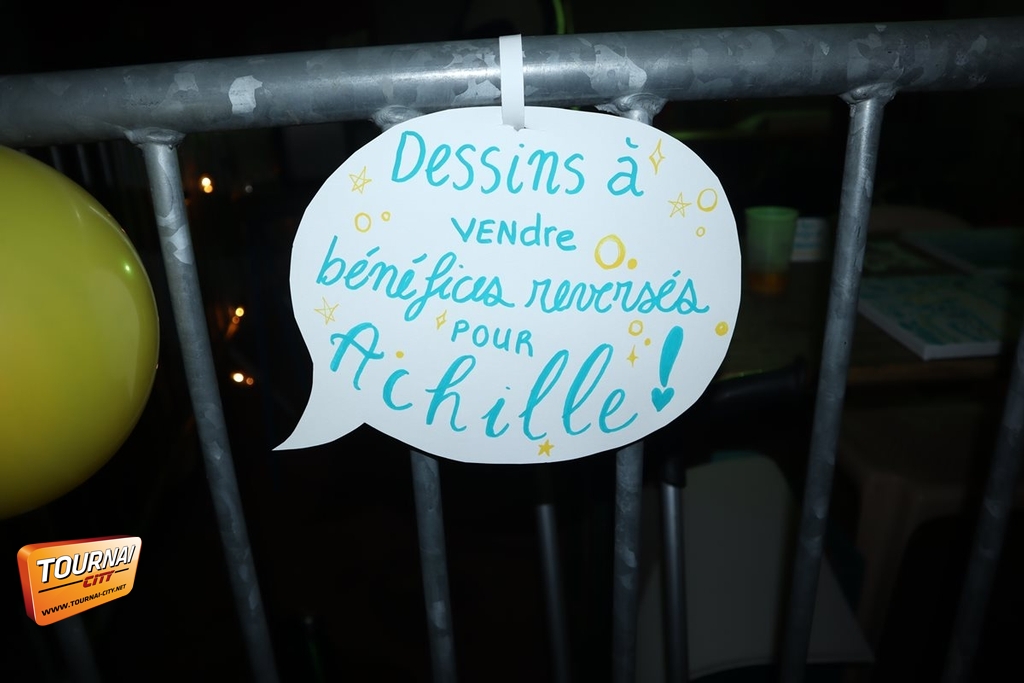 Dessins à
VENdre
bénéfices reversés
POUR
Achille !
TOURNAI
CITY
WWW.TOURNAI-CITY.NET